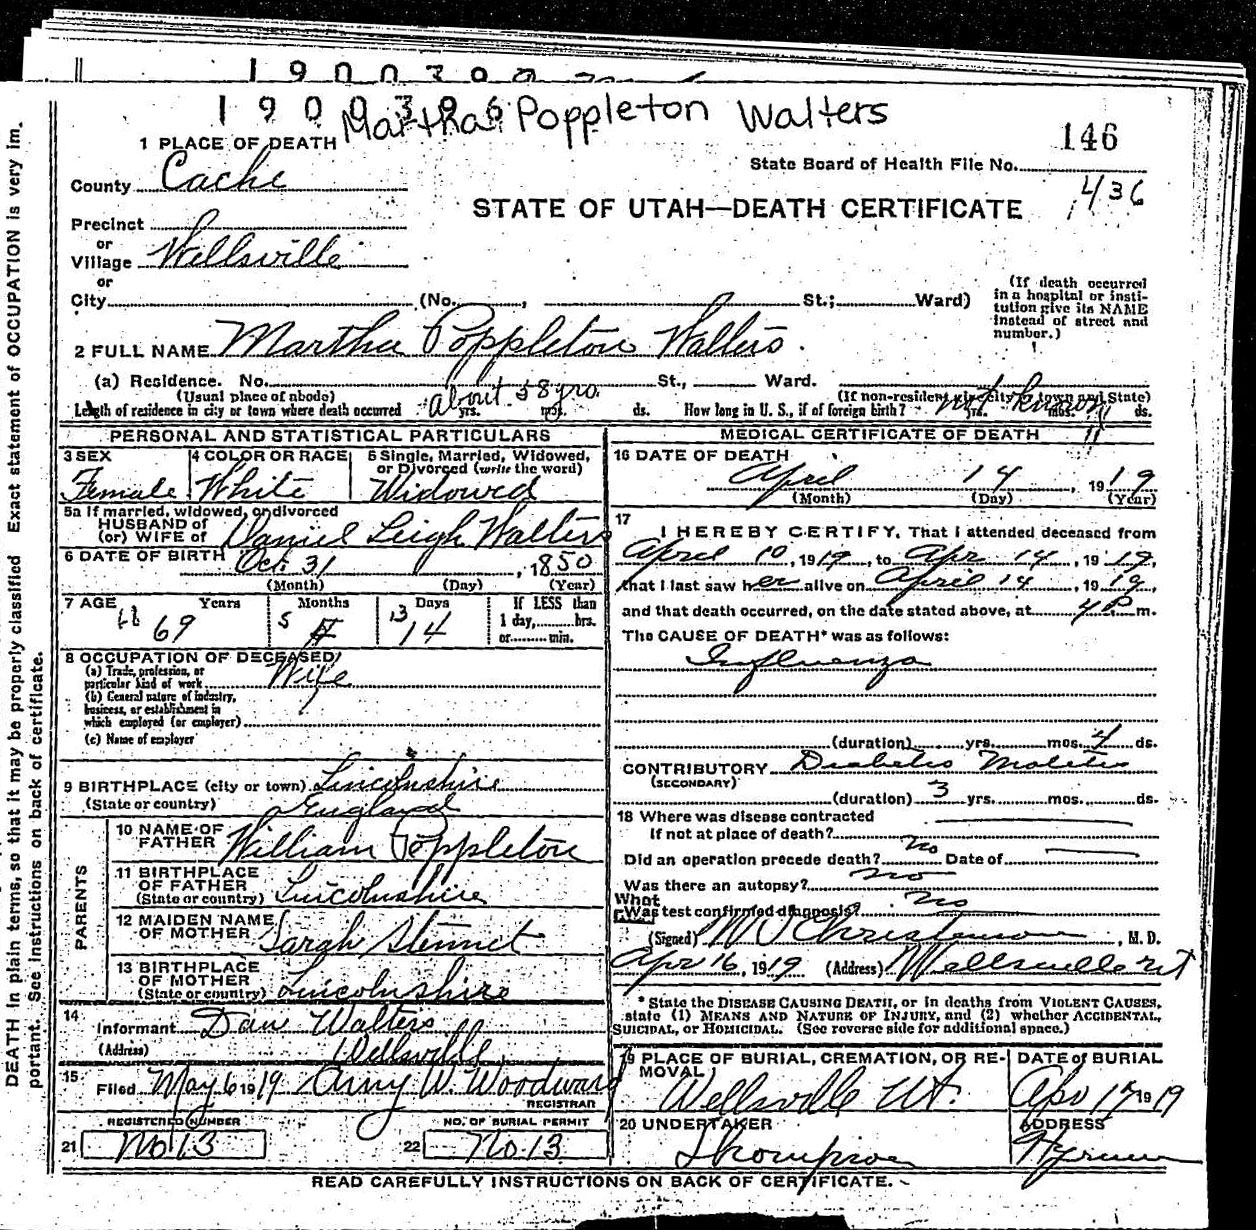 1900396
Martha Poppleton Walters
1 PLACE OF DEATH
146
State Board of Health File No.
County Cache
436
STATE OF UTAH—DEATH CERTIFICATE
Precinct
or
Village Wellsville
or
City (No. , St.; Ward)
(If death occurred in a hospital or insti-
tution give its NAME instead of street and number.)
2 FULL NAME Martha Poppleton Walters.
(a) Residence. No. St., Ward.
(Usual place of abode) (If non-resident give city or town and State)
Length of residence in city or town where death occurred about 58 yrs. yrs. mos. ds. How long in U. S., if of foreign birth? not known yrs. mos. ds.
PERSONAL AND STATISTICAL PARTICULARS
3 SEX Female
4 COLOR OR RACE White
5 Single, Married, Widowed, or Divorced (write the word) Widowed
5a If married, widowed, or divorced
HUSBAND of
(or) WIFE of Daniel Leigh Walters
6 DATE OF BIRTH Oct 31, 1850
(Month) (Day) (Year)
7 AGE Years Months Days If LESS than
68 69 5 13 14 1 day, hrs.
or min.
8 OCCUPATION OF DECEASED
(a) Trade, profession, or
particular kind of work Wife
(b) General nature of industry,
business, or establishment in
which employed (or employer)
(c) Name of employer
9 BIRTHPLACE (city or town) Lincolnshire
(State or country) England
PARENTS
10 NAME OF
FATHER William Poppleton
11 BIRTHPLACE
OF FATHER
(State or country) Lincolnshire
12 MAIDEN NAME
OF MOTHER Sarah Stennet
13 BIRTHPLACE
OF MOTHER
(State or country) Lincolnshire
14
Informant Dan Walters
(Address) Wellsville
15
Filed May 6 1919 Amy W. Woodward
REGISTRAR
REGISTERED NUMBER
21 No 13
NO. OF BURIAL PERMIT
22 No. 13
MEDICAL CERTIFICATE OF DEATH
16 DATE OF DEATH
April 14, 1919
(Month) (Day) (Year)
17
I HEREBY CERTIFY, That I attended deceased from
April 10, 1919, to Apr 14, 1919,
that I last saw her alive on April 14, 1919,
and that death occurred, on the date stated above, at 4 P m.
The CAUSE OF DEATH* was as follows:
Influenza
(duration) yrs. mos. 4 ds.
CONTRIBUTORY Diabetis Melitis
(SECONDARY)
(duration) 3 yrs. mos. ds.
18 Where was disease contracted
If not at place of death?
Did an operation precede death? no Date of
Was there an autopsy? no
What
Was test confirmed diagnosis? no
(Signed) W J Christenson, M. D.
Apr 16, 1919 (Address) Wellsville Ut
* State the DISEASE CAUSING DEATH, or in deaths from VIOLENT CAUSES,
state (1) MEANS AND NATURE OF INJURY, and (2) whether ACCIDENTAL,
SUICIDAL, or HOMICIDAL. (See reverse side for additional space.)
19 PLACE OF BURIAL, CREMATION, OR RE-
MOVAL
Wellsville Ut.
DATE of BURIAL
Apr 17 1919
20 UNDERTAKER
Thompson
ADDRESS
Hyrum
READ CAREFULLY INSTRUCTIONS ON BACK OF CERTIFICATE.
DEATH in plain terms, so that it may be properly classified Exact statement of OCCUPATION is very im-
portant. See Instructions on back of certificate.